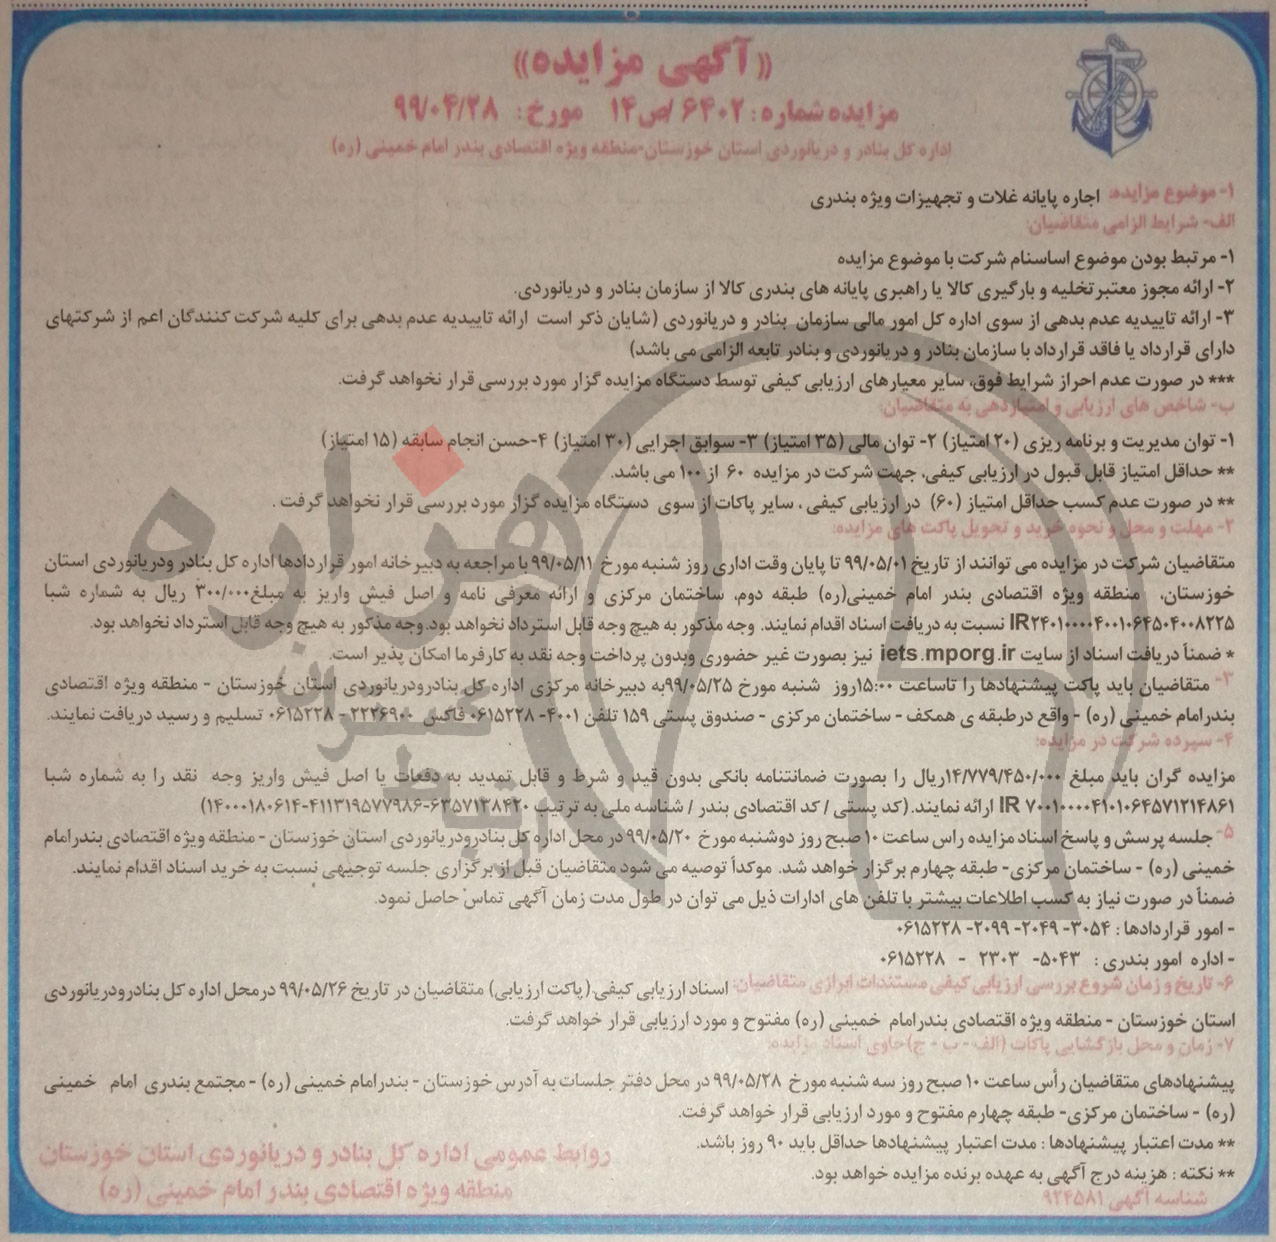 «آگهی مزایده»
مزایده شماره: ۶۴۰۲/ص۱۴ مورخ: ۹۹/۰۴/۲۸
اداره کل بنادر و دریانوردی استان خوزستان-منطقه ویژه اقتصادی بندر امام خمینی (ره)
۱- موضوع مزایده: اجاره پایانه غلات و تجهیزات ویژه بندری
الف- شرایط الزامی متقاضیان:
۱- مرتبط بودن موضوع اساسنام شرکت با موضوع مزایده
۲- ارائه مجوز معتبرتخلیه و بارگیری کالا یا راهبری پایانه های بندری کالا از سازمان بنادر و دریانوردی.
۳- ارائه تاییدیه عدم بدهی از سوی اداره کل امور مالی سازمان بنادر و دریانوردی (شایان ذکر است ارائه تاییدیه عدم بدهی برای کلیه شرکت کنندگان اعم از شرکتهای
دارای قرارداد یا فاقد قرارداد با سازمان بنادر و دریانوردی و بنادر تابعه الزامی می باشد)
*** در صورت عدم احراز شرایط فوق، سایر معیارهای ارزیابی کیفی توسط دستگاه مزایده گزار مورد بررسی قرار نخواهد گرفت.
ب- شاخص های ارزیابی و امتیازدهی به متقاضیان:
۱- توان مدیریت و برنامه ریزی (۲۰ امتیاز) ۲- توان مالی (۳۵ امتیاز) ۳- سوابق اجرایی (۳۰ امتیاز) ۴-حسن انجام سابقه (۱۵ امتیاز)
** حداقل امتیاز قابل قبول در ارزیابی کیفی، جهت شرکت در مزایده ۶۰ از ۱۰۰ می باشد.
** در صورت عدم کسب حداقل امتیاز (۶۰) در ارزیابی کیفی ، سایر پاکات از سوی دستگاه مزایده گزار مورد بررسی قرار نخواهد گرفت .
۲- مهلت و محل و نحوه خرید و تحویل پاکت های مزایده:
متقاضیان شرکت در مزایده می توانند از تاریخ ۹۹/۰۵/۰۱ تا پایان وقت اداری روز شنبه مورخ ۹۹/۰۵/۱۱ با مراجعه به دبیرخانه امور قراردادها اداره کل بنادر ودریانوردی استان
خوزستان، منطقه ویژه اقتصادی بندر امام خمینی(ره) طبقه دوم، ساختمان مرکزی و ارائه معرفی نامه و اصل فیش واریز به مبلغ۳۰۰/۰۰۰ ریال به شماره شبا
IR۲۴۰۱۰۰۰۰۴۰۰۱۰۶۴۵۰۴۰۰۸۲۲۵ نسبت به دریافت اسناد اقدام نمایند. وجه مذکور به هیچ وجه قابل استرداد نخواهد بود.وجه مذکور به هیچ وجه قابل استرداد نخواهد بود.
* ضمناً دریافت اسناد از سایت iets.mporg.ir نیز بصورت غیر حضوری وبدون پرداخت وجه نقد به کارفرما امکان پذیر است.
۳- متقاضیان باید پاکت پیشنهادها را تاساعت ۱۵:۰۰روز شنبه مورخ ۹۹/۰۵/۲۵به دبیرخانه مرکزی اداره کل بنادرودریانوردی استان خوزستان - منطقه ویژه اقتصادی
بندرامام خمینی (ره) - واقع درطبقه ی همکف - ساختمان مرکزی - صندوق پستی ۱۵۹ تلفن ۴۰۰۱- ۰۶۱۵۲۲۸ فاکس ۲۲۲۶۹۰۰ - ۰۶۱۵۲۲۸ تسلیم و رسید دریافت نمایند.
۴- سپرده شرکت در مزایده:
مزایده گران باید مبلغ ۱۴/۷۷۹/۴۵۰/۰۰۰ریال را بصورت ضمانتنامه بانکی بدون قید و شرط و قابل تمدید به دفعات یا اصل فیش واریز وجه نقد را به شماره شبا
IR ۷۰۰۱۰۰۰۰۴۱۰۱۰۶۴۵۷۱۲۱۴۸۶۱ ارائه نمایند.(کد پستی / کد اقتصادی بندر / شناسه ملی به ترتیب ۶۳۵۷۱۳۸۴۲۰-۴۱۱۳۱۹۵۷۷۹۸۶-۱۴۰۰۰۱۸۰۶۱۴)
۵- جلسه پرسش و پاسخ اسناد مزایده راس ساعت ۱۰ صبح روز دوشنبه مورخ ۹۹/۰۵/۲۰ در محل اداره کل بنادرودریانوردی استان خوزستان - منطقه ویژه اقتصادی بندرامام
خمینی (ره) - ساختمان مرکزی- طبقه چهارم برگزار خواهد شد. موکداً توصیه می شود متقاضیان قبل از برگزاری جلسه توجیهی نسبت به خرید اسناد اقدام نمایند.
ضمناً در صورت نیاز به کسب اطلاعات بیشتر با تلفن های ادارات ذیل می توان در طول مدت زمان آگهی تماس حاصل نمود.
- امور قراردادها : ۳۰۵۴- ۲۰۴۹- ۲۰۹۹- ۰۶۱۵۲۲۸
- اداره امور بندری : ۵۰۴۳- ۲۳۰۳ - ۰۶۱۵۲۲۸
۶- تاریخ و زمان شروع بررسی ارزیابی کیفی مستندات ابرازی متقاضیان: اسناد ارزیابی کیفی.(پاکت ارزیابی) متقاضیان در تاریخ ۹۹/۰۵/۲۶ درمحل اداره کل بنادرودریانوردی
استان خوزستان - منطقه ویژه اقتصادی بندرامام خمینی (ره) مفتوح و مورد ارزیابی قرار خواهد گرفت.
۷- زمان و محل بازگشایی پاکات (الف - ب - ج)حاوی اسناد مزایده:
پیشنهادهای متقاضیان رأس ساعت ۱۰ صبح روز سه شنبه مورخ ۹۹/۰۵/۲۸ در محل دفتر جلسات به آدرس خوزستان - بندرامام خمینی (ره) - مجتمع بندری امام خمینی
(ره) - ساختمان مرکزی- طبقه چهارم مفتوح و مورد ارزیابی قرار خواهد گرفت.
** مدت اعتبار پیشنهادها : مدت اعتبار پیشنهادها حداقل باید ۹۰ روز باشد.
** نکته : هزینه درج آگهی به عهده برنده مزایده خواهد بود.
شناسه آگهی ۹۲۴۵۸۱
روابط عمومی اداره کل بنادر و دریانوردی استان خوزستان
منطقه ویژه اقتصادی بندر امام خمینی (ره)
هزاره